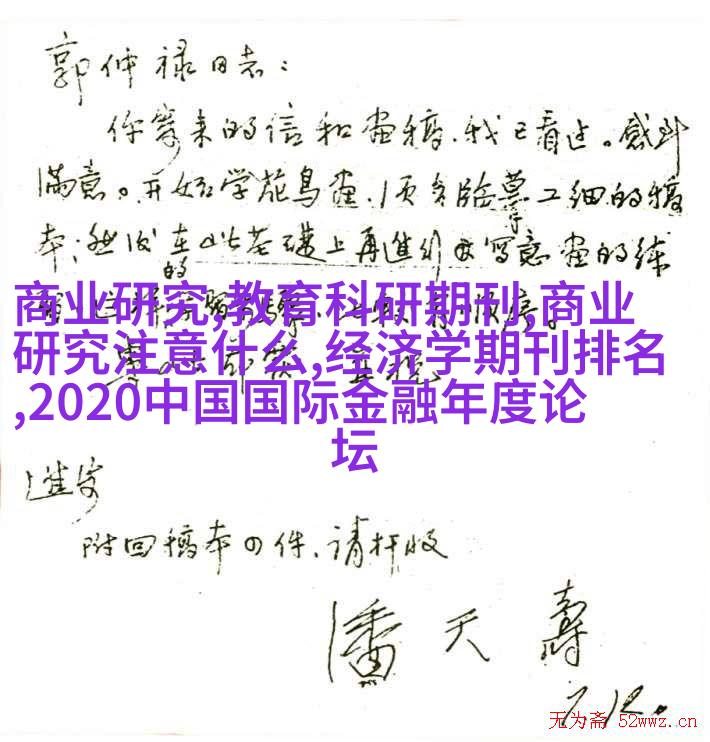 郭仲禄同志：
你寄来的信和画稿，我已看过。感到
满意。开始学花鸟画，须多临摹工细的稿
本；然后在此基础上再进行写意画的练
的
商业研究,教育科研期刊,商业
研究注意什么,经济学期刊排名
,2020中国国际金融年度论
坛
进安
附回稿本四件、请检收
潘天寿
7.12.
无为斋 52wwz.cn